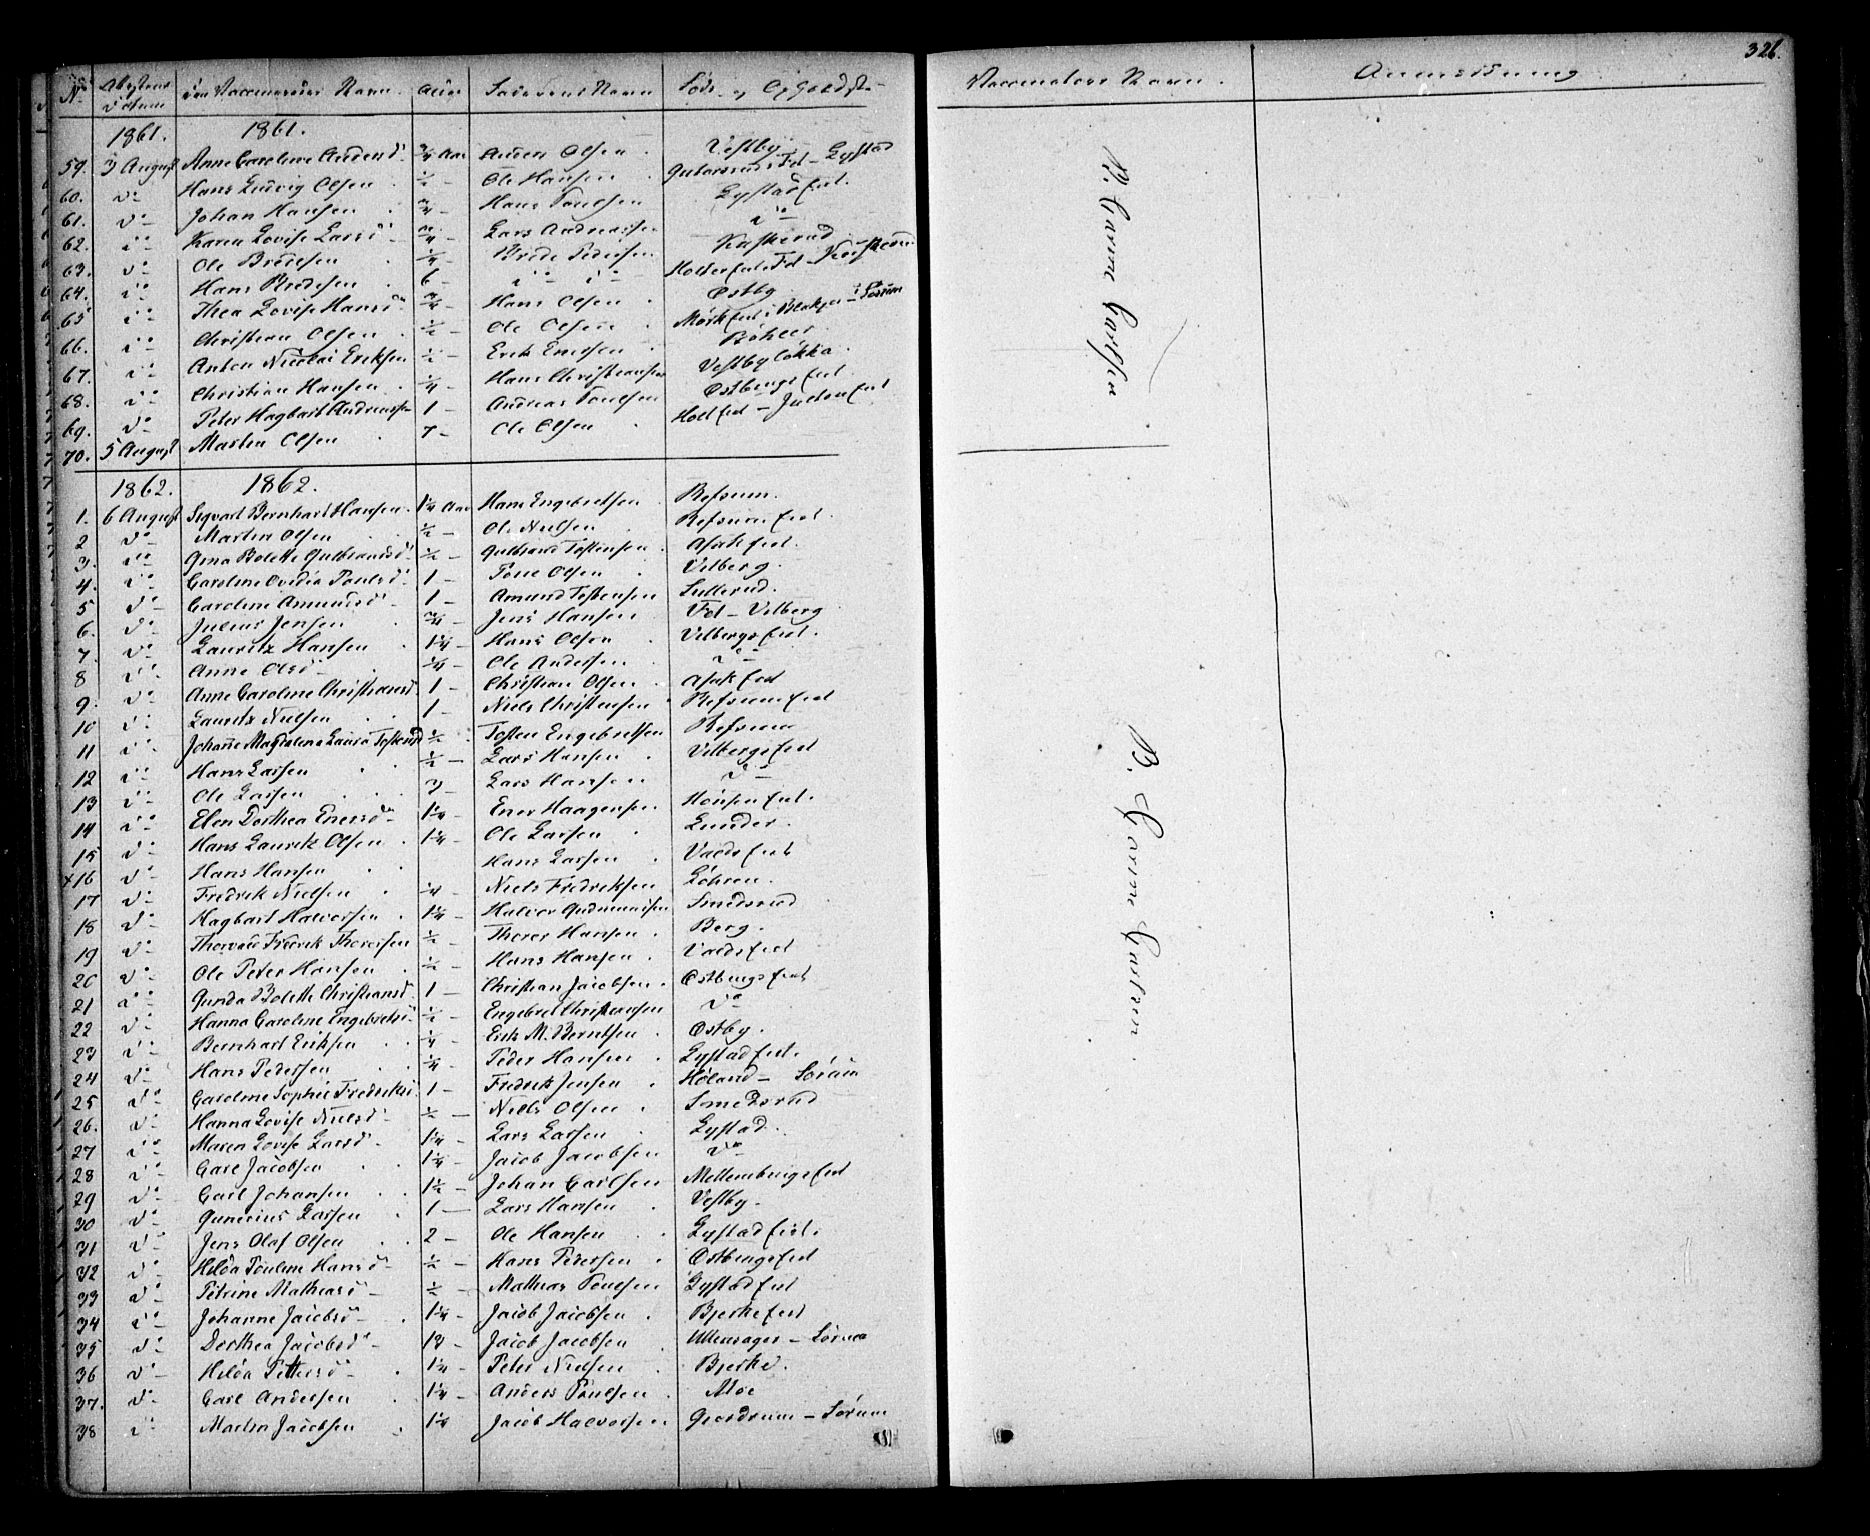 326.
No Attestens Datum Den Vaccineredes Navn. Alder Faderens Navn Føde- og Opholdsst.
Vaccinateurs Navn. Anmerkning
1861. 1861.
59. 3 August Anne Caroline Andersd. 3/4 Aar Anders Olsen Vestby
60. do Hans Ludvig Olsen 1/2 - Ole Hansen Fd - Gystad
61. do Johan Hansen 3/4 - Hans Poulsen Gystad Eiet.
62. do Karen Lovise Larsd. 3/4 - Lars Andreassen do
63. do Ole Bredesen 1/4 - Brede Pedersen
64. do Hans Bredesen 6 - do do
65 do Thea Lovise Hansd. 3/4 - Hans Olsen Østby
66. do Christian Olsen 1/2 - Ole Olsen Mørk Eiet i Blakjer - Sørum
67. do Anton Nicolai Eriksen 1/2 - Erik Enersen Bøhler
68. do Christian Hansen 1/4 - Hans Christiansen Vestby løkka
69. do Peter Hagbart Andreassen 1 - Andreas Poulsen Østbyngs Eiet
70. 5 August Martin Olsen 7 - Ole Olsen Holt Eiet -
P. Garme Carlsen
1862. 1862.
1. 6 August Sigvart Bernhart Hansen 1 1/4 Aar Hans Engebretsen Refsum.
2 do Martin Olsen 1/2 - Ole Nielsen Refsum Eiet.
3. do Gina Bolette Gulbransd. 1/2 - Gulbrand Tostensen Asak Eiet.
4. do Caroline Ovidia Poulsd. 1 - Poul Olsen Vilberg.
5 do Caroline Amundsd. 1 - Amund Tostensen Lullerud.
6. do Julius Jensen 3/4 - Jens Hansen Fd - Vilberg
7. do Lauritz Hansen 1 1/4 - Hans Olsen Vilbergs Eiet.
8 do Anne Olsd. 1/4 - Ole Andersen do
9. do Anne Caroline Christiansd. 1 - Christian Olsen Asak Eiet
10 do Lauritz Nielsen 1 - Niels Christensen Refsum Eiet
11 do Johanne Magdalena Laura Tostensd. 1/2 - Tosten Engebretsen Refsum
12 do Hans Larsen 1/2 - Lars Hansen Vilbergs Eiet
13 do Ole Larsen 3 - Lars Hansen do
14 do Elen Dorthea Enersd. 1 1/4 - Ener Haagensen Hønsen Eiet.
15 do Hans Lauritz Olsen 1 1/4 - Ole Larsen Lunder.
+16 do Hans Hansen Hans Larsen Valds Eiet
17 do Fredrik Nielsen 1/4 - Niels Fredriksen Løhren.
18 do Hagbart Halvorsen 1 1/4 - Halvor Gudmundsen Smedsrud
19 do Thorvald Fredrik Thoresen 1/2 - Thorer Hansen Berg.
20 do Ole Peter Hansen 1/2 - Hans Hansen Valds Eiet
21 do Gunda Bolette Christiansd. 1 - Christian Jacobsen Østbyngs Eiet
22 do Hanna Caroline Engebretsd. 1/2 - Engebret Christiansen do
23 do Bernhart Eriksen 1/4 - Erik M. Berntsen Østby.
24 do Hans Pedersen 1/4 - Peder Hansen Gystad Eiet.
25 do Caroline Sophie Fredriksd. 1 - Fredrik Jensen Høland - Sørum
26. do Hanna Lovise Nielsd. 1/2 - Niels Olsen Smedsrud
27 do Maren Lovise Larsd. 1 1/4 - Lars Larsen Gystad.
28 do Carl Jacobsen 1 1/4 - Jacob Jacobsen do
29 do Carl Johansen 1 1/2 - Johan Carlsen Mellembyngs Eiet
30 do Gunerius Larsen 1 - Lars Hansen Vestby.
31 do Jens Olaf Olsen 2 - Ole Hansen Gystad Eiet.
32 do Hilda Pouline Hansd. 1/2 - Hans Pedersen Østbyngs Eiet
33 do Petrine Mathiasd. 1/2 - Mathias Poulsen Gystad Eiet
34 do Johanne Jacobsd. 1 1/4 - Jacob Jacobsen Bjerke Eiet
35 do Dorthea Jacobsd. 13 - Jacob Jacobsen Ullensager - Sørum
36 do Hilda Pettersd. 1 1/4 - Peter Nielsen Bjerke.
37. do Carl Andersen 1 1/4 - Anders Poulsen Moe
38 do Martin Jacobsen 1 1/4 Jacob Halvorsen Gjerdrum - Sørum
P. Garme Carlsen